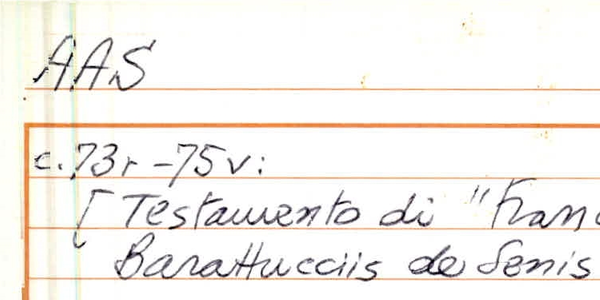 AAS
c. 73r - 75v:
[ Testamento di "Fran
Barattucciis de Senis